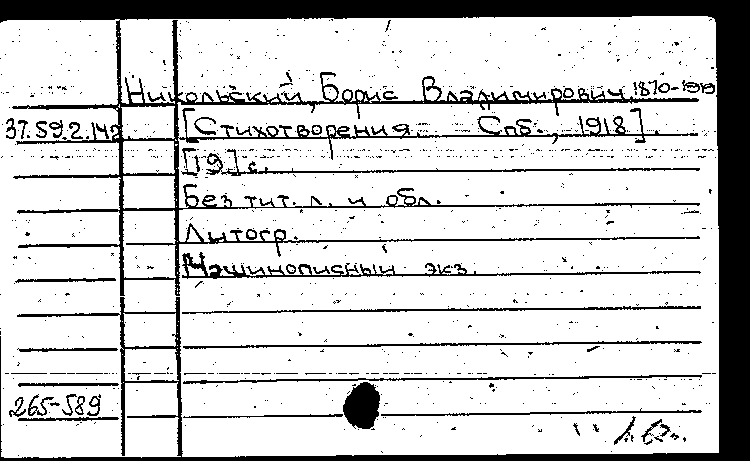 Никольский, Борис Владимирович, 1870-1919
37.59.2.142 [Стихотворения. - Спб., 1918].
[19] с.
Без тит. л. и обл.
Литогр.
Машинописный экз.
265-589